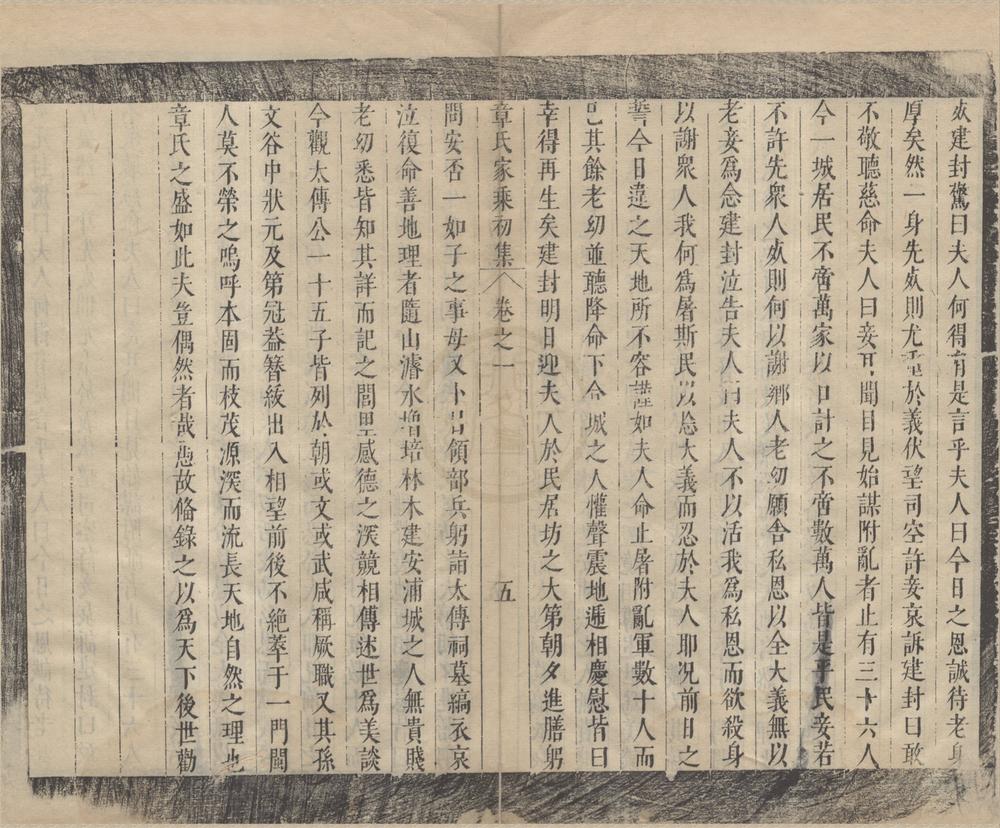 歿建封驚曰夫人何得有是言乎夫人曰今日之恩誠待老身
厚矣然一身先歿則尤重於義伏望司空許妾哀訴建封曰敢
不敬聽慈命夫人曰妾耳聞目見始謀附亂者止有三十六人
今一城居民不啻萬家以口計之不啻數萬人皆是平民妾若
不許先衆人歿則何以謝鄉人老幼願舍私恩以全大義無以
老妾爲念建封泣告夫人曰夫人不以活我爲私恩而欲殺身
以謝衆人我何爲屠斯民以怂大義而忍於夫人耶况前日之
誓今日違之天地所不容謹如夫人命止屠附亂軍數十人而
已其餘老幼並聽降命下合城之人懽聲震地遞相慶慰皆曰
幸得再生矣建封明日迎夫人於民居坊之大第朝夕進膳躬
章氏家乘初集 卷之一 五
問安否一如子之事母又卜日領部兵躬詣太傳祠墓縞衣哀
泣復命善地理者隨山濬水增培林木建安浦城之人無貴賤
老幼悉皆知其詳而記之閭里感德之深競相傳述世爲美談
今觀太傳公一十五子皆列於朝或文或武咸稱厥職又其孫
文谷中狀元及第冠葢簪紱出入相望前後不絕萃于一門閭
人莫不榮之嗚呼本固而枝茂源深而流長天地自然之理也
章氏之盛如此夫豈偶然者哉 故僃錄之以爲天下後世勸